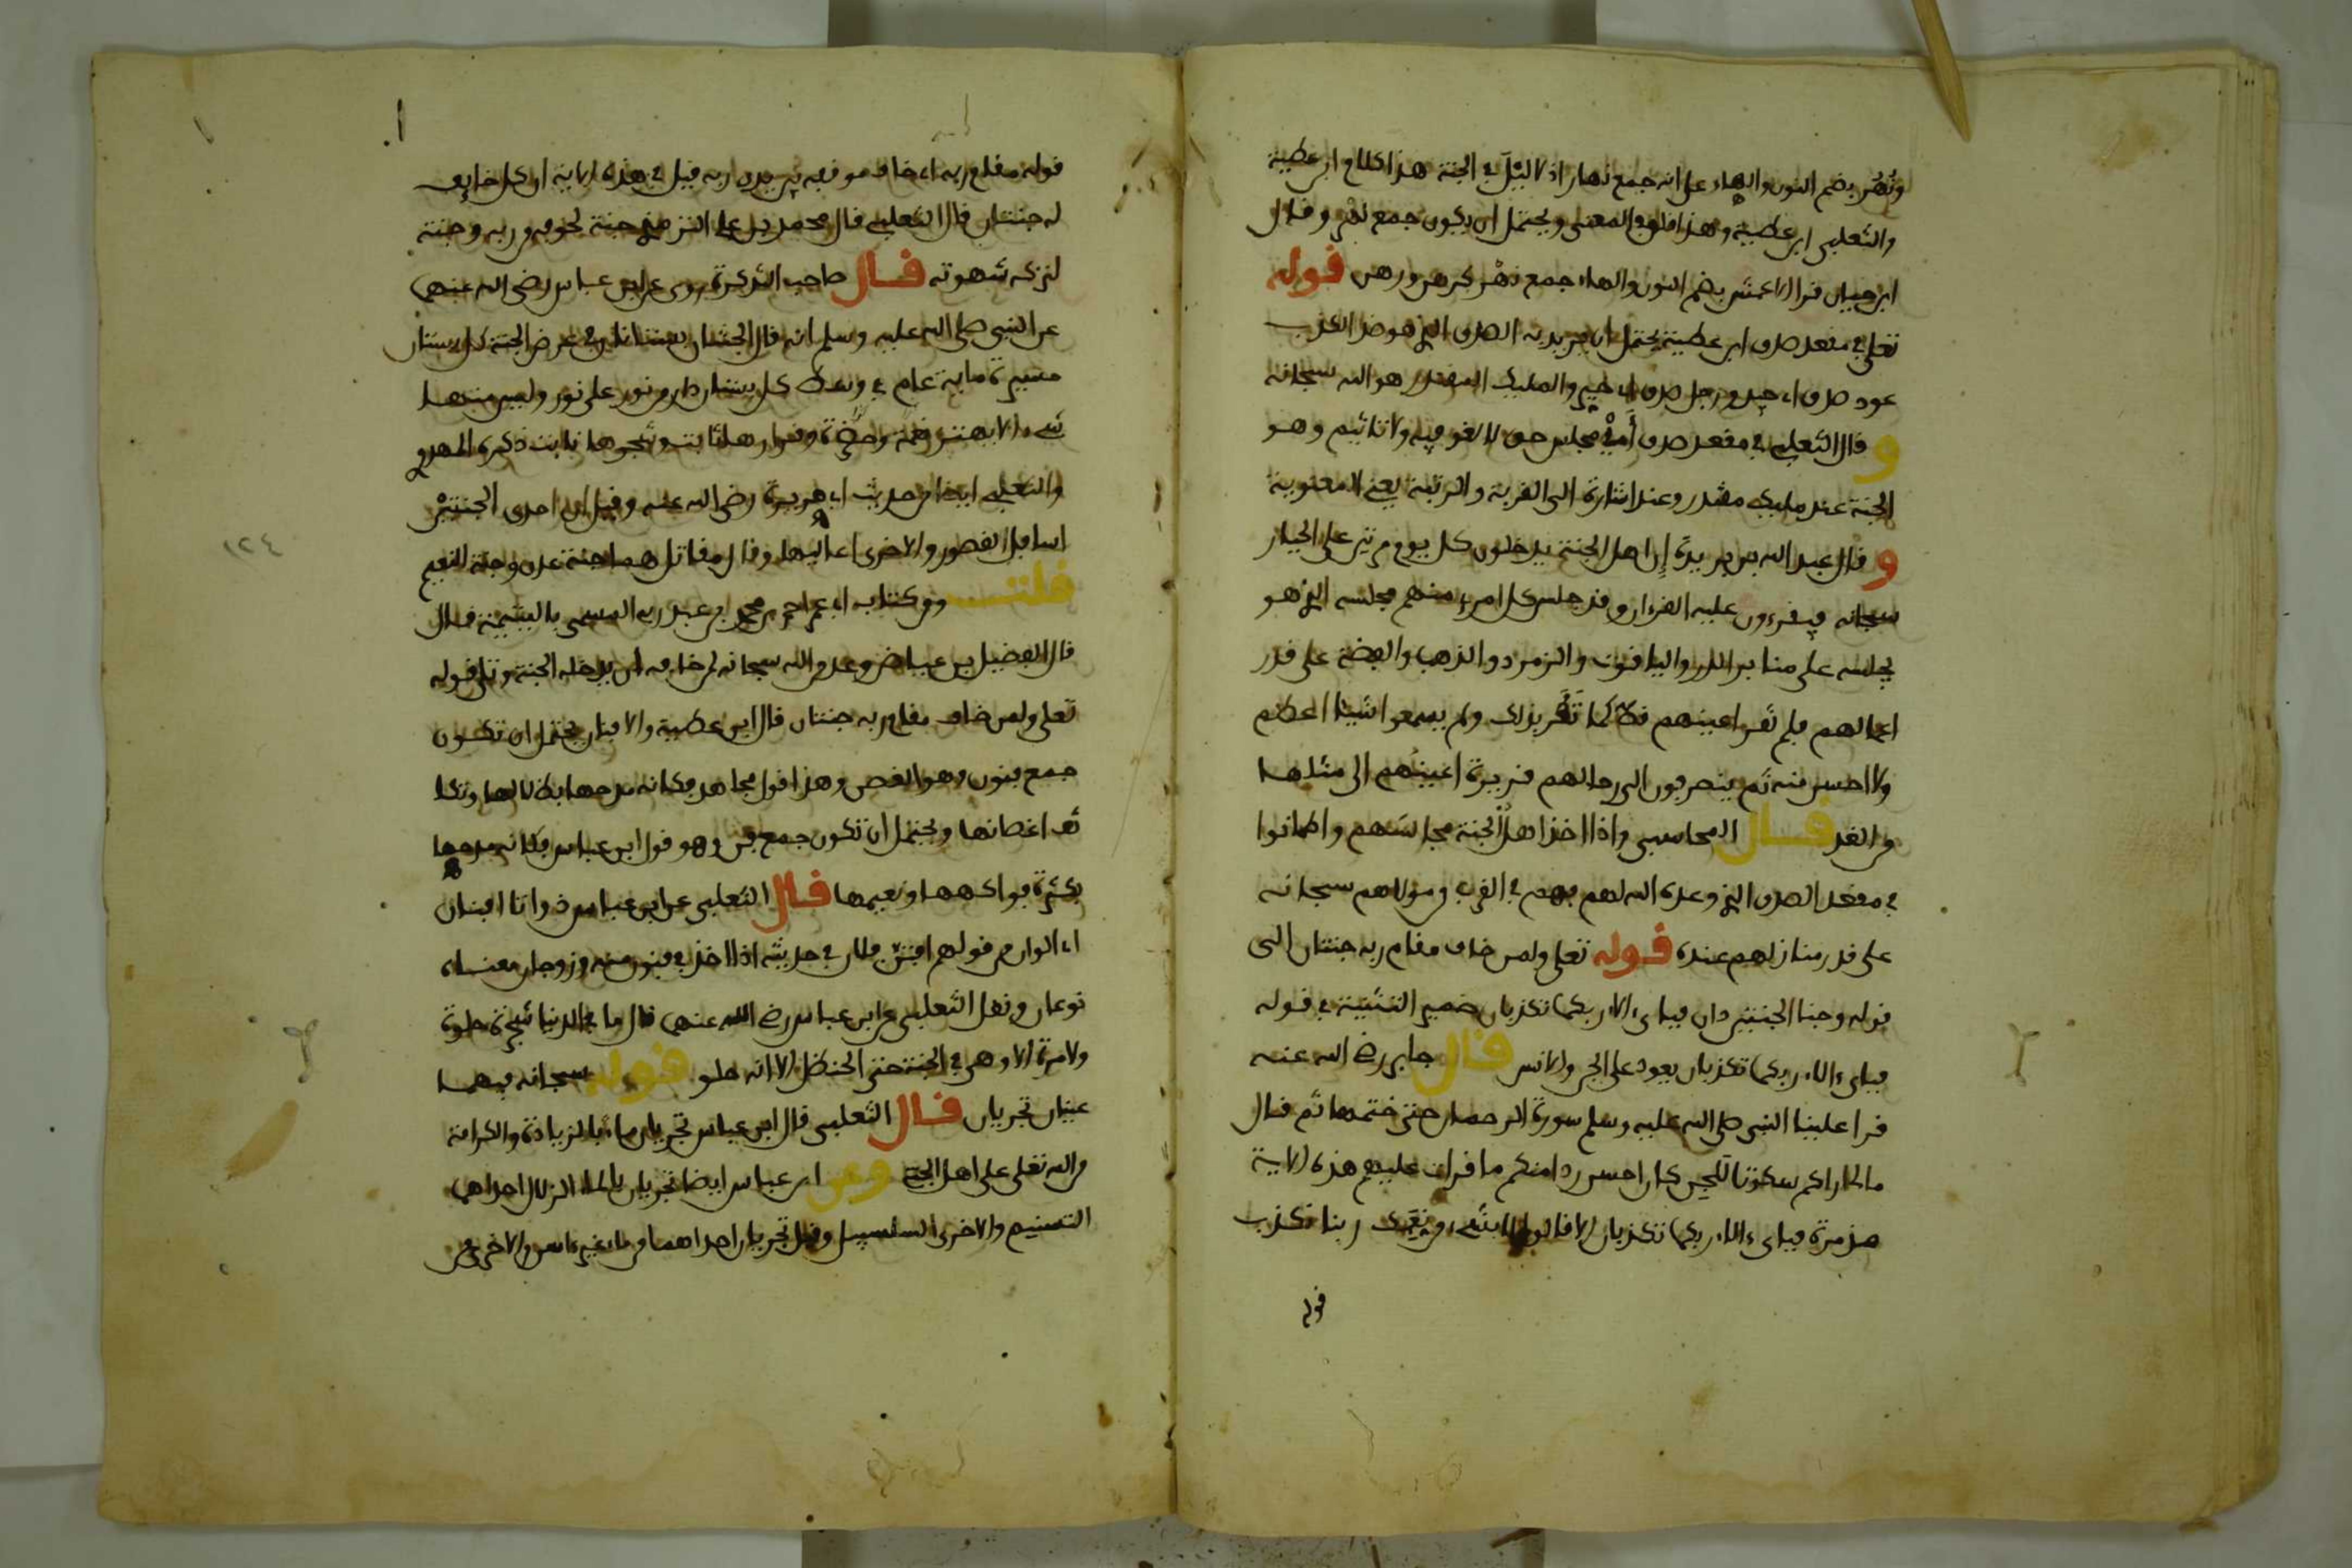 ونُهُر بضم النون والهاء على انه جمع نهار اذ لا ليل في الجنة هذا كلام ابن عطية
والثعلبي ابن عطية وهذا قلق في المعنى ويحتمل ان يكون جمع نهر وقال
ابن حيان قرا الاعمش بضم النون والهاء جمع نهر كرهن ورهن قوله
تعلى في مقعد صدق ابن عطية يحتمل ان يريد به الصدق الذي هو ضد الكذب
عود صدق اي جيد ورجل صدق اي خير والمليك المقتدر هو الله سبحانه
و قال الثعلبي في مقعد صدق أي في مجلس حق لا لغو فيه ولا تاثيم وهو
الجنة عند مليك مقتدر وعند اشارة الى القربة والرتبة يعني المعنوية
و قال عبد الله بن بريدة إن اهل الجنة يدخلون كل يوم مرتين على الجبار
سبحانه فيقرءون عليه القرءان وقد جلس كل امرء منهم مجلسه الذي هو
يجلسه على منابر الدر والياقوت والزمرد والذهب والفضة على قدر
اعمالهم فلم تقر اعينهم قط كما تَقَر بذلك ولم يسمعوا شيئا اعظم
ولا احسن منه ثم ينصرفون الى رحالهم قريرة اعينُهم الى مثلها
من الغد قال المحاسبي واذا اخذ اهلُ الجنة مجالسَهم واطمانوا
في مقعد الصدق الذي وعده الله لهم فهم في القرب من مولاهم سبحانه
على قدر منازلهم عنده قوله تعلى ولمن خاف مقام ربه جنتان الى
قوله وجنا الجنتين دان فباى ءالاء ربكما تكذبان ضمير التثنية في قوله
فباى ءالاء ربكما تكذبان يعود على الجن والانس قال جابر رضي الله عنه
قرا علينا النبي صلى الله عليه وسلم سورة الرحمان حتى ختمها ثم قال
ما لي اراكم سكوتا لَلجن كان احسن ردا منكم ما قرات عليهم هذه الاية
من مرة فباى ءالاء ربكما تكذبان الا قالوا لا بشيء من نِعَمِك ربنا نكذب
قوله
قوله مقام ربه اي خاف موقفه بين يدي ربه قيل في هذه الاية ان كل خايف
له جنتان قال الثعلبي قال محمد بن علي الترمذي جنة لخوفه من ربه وجنة
لتركه شهوته قال صاحب التذكرة روي عن ابن عباس رضي الله عنهما
عن النبي صلى الله عليه وسلم انه قال الجنتان بستانان في عرض الجنة كل بستان
مسيرة ماية عام في وسط كل بستان دار من نور على نور وليس منها
شيء الا يهتز نعمة وخضرة وقرارها ثابت وشجرها ثابت ذكره المهدوي
والثعلبي ايضا من حديث ابي هريرة رضي الله عنه وقيل ان احدى الجنتين
اسافل القصور والاخرى اعاليها وقال مقاتل هما جنة عدن وجنة النعيم
قلت ومن كتاب ابي عمر احمد بن محمد بن عبد ربه المسمى باليتيمة قال
قال الفضيل بن عياض وعد من الله سبحانه لمن خافه ان يدخله الجنة وتلى قوله
تعلى ولمن خاف مقام ربه جنتان قال ابن عطية والافنان يحتمل ان تكون
جمع فنن وهو الغصن وهذا قول مجاهد فكانه مدحها بظلالها وتكا
ثف اغصانها ويحتمل ان تكون جمع فن وهو قول ابن عباس فكانه مدحها
بكثرة فواكهها ونعيمها قال الثعلبي عن ابن عباس ذواتا افنان
اي الوان من قولهم افتن فلان في حديثه اذا اخذ في فنون منه وزوجان معناه
نوعان ونقل الثعلبي عن ابن عباس رضي الله عنهما قال ما في الدنيا شجرة حلوة
ولا مرة الا وهي في الجنة حتى الحنظل الا انه حلو قوله سبحانه فيهما
عينان تجريان قال الثعلبي قال ابن عباس تجريان ماء بالزيادة والكرامة
من الله تعلى على اهل الجنة وعن ابن عباس ايضا تجريان بالماء الزلال احداهما
التسنيم والاخرى السلسبيل وقيل تجريان احداهما من ماء غير ءاسن والاخرى من
١٢٤